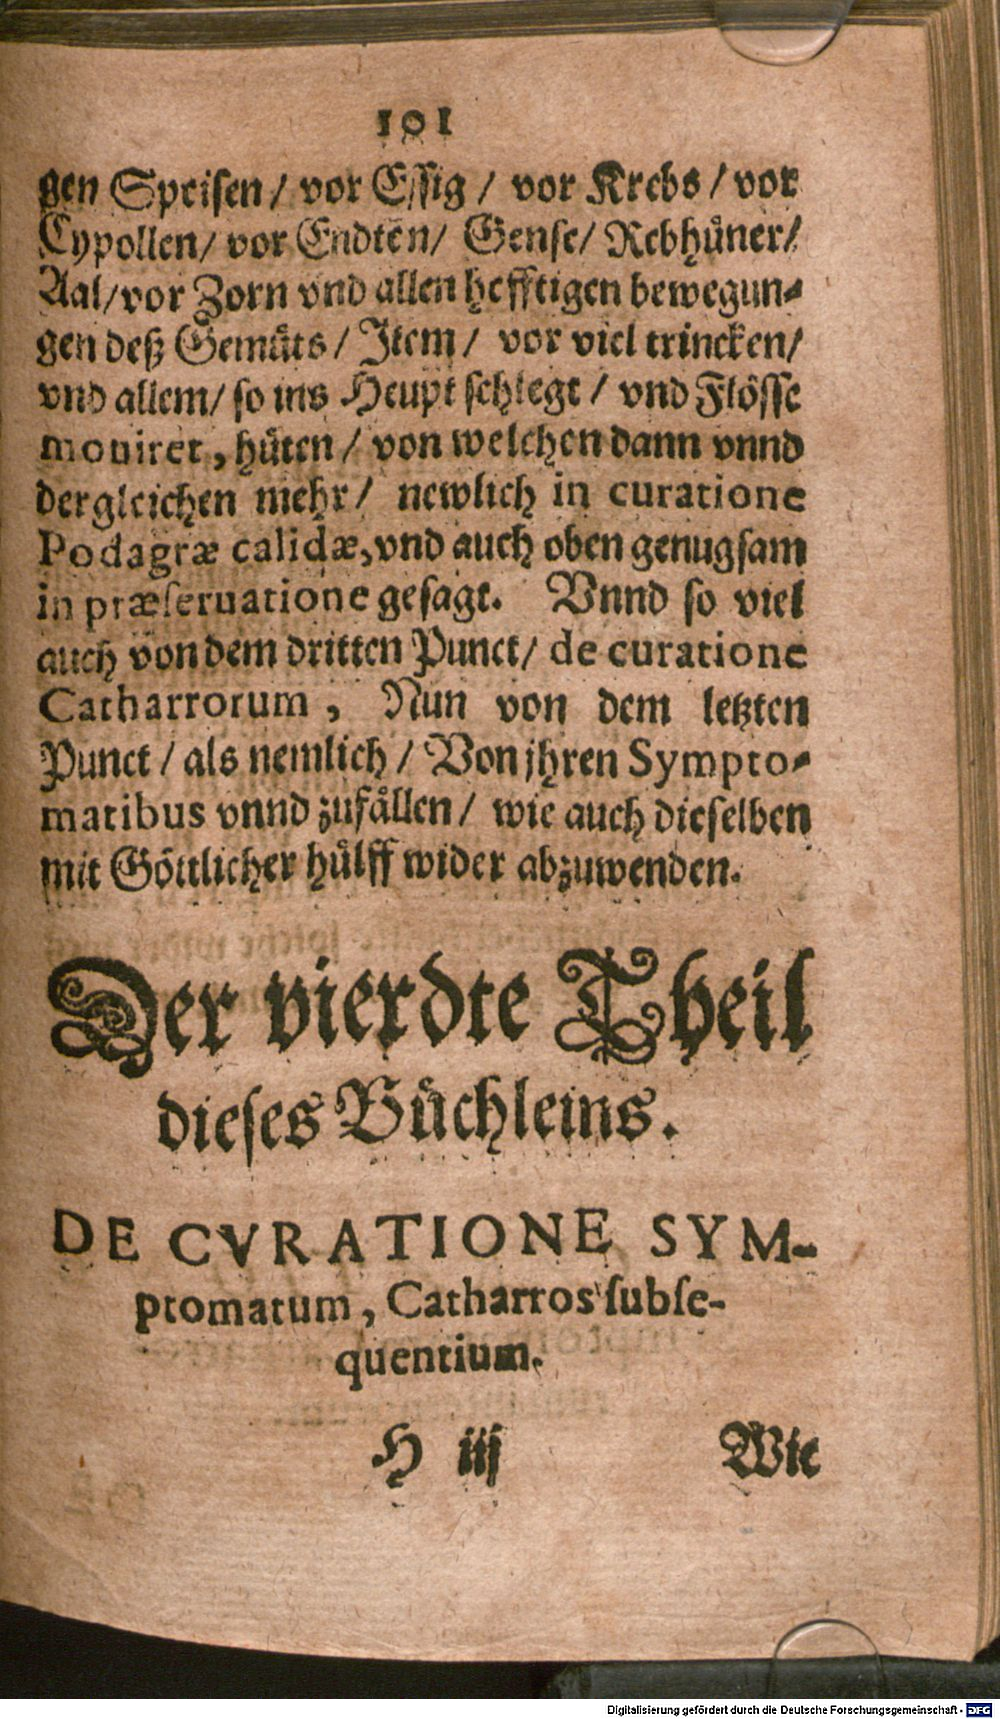 101
gen Speisen / vor Essig / vor Krebs / vor
Cypollen / vor Endten / Gense / Rebhůner /
Aal / vor Zorn vnd allen hefftigen bewegun-
gen deß Gemůts / Jtem / vor viel trincken /
vnd allem / so ins Heupt schlegt / vnd Flösse
mouiret, hůten / von welchen dann vnnd
dergleichen mehr / newlich in curatione
Podagræ calidæ, vnd auch oben genugsam
in præseruatione gesagt. Vnnd so viel
auch von dem dritten Punct / de curatione
Catharrorum, Nun von dem letzten
Punct / als nemlich / Von jhren Sympto-
matibus vnnd zufållen / wie auch dieselben
mit Göttlicher hůlff wider abzuwenden.
Der vierdte Theil
dieses Bůchleins.
DE CVRATIONE SYM-
ptomatum, Catharros subse-
quentium.
H iij Wie
Digitalisierung gefördert durch die Deutsche Forschungsgemeinschaft - DFG